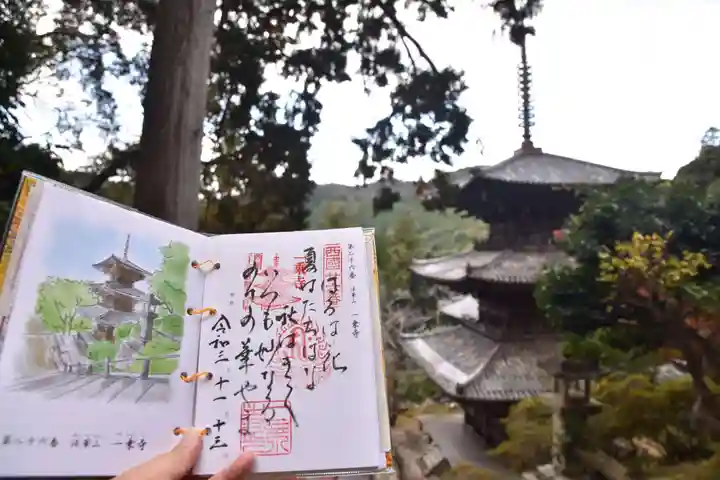 第二十六番 法華山 一乗寺
第二十六番 法華山 一乗寺
はるは花
夏はたちばな
秋はきく
いつも妙なる
のりの華やま
令和三 十一 十三